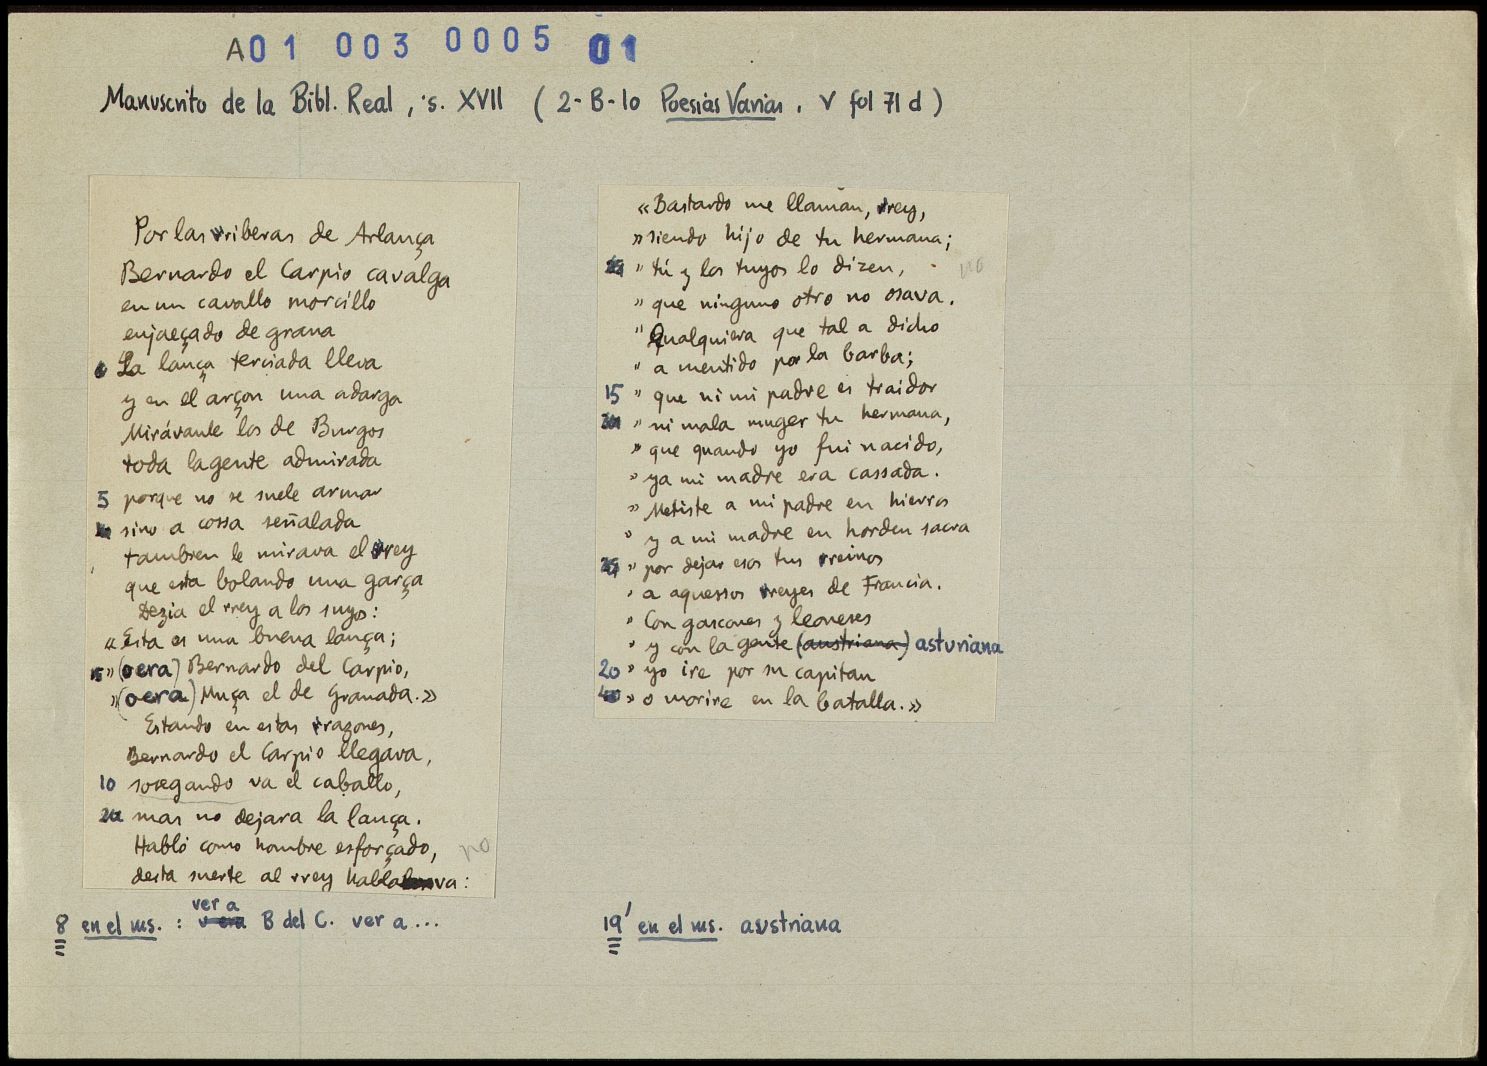 A01 003 0005 01
Manuscrito de la Bibl. Real, s. XVII (2-B-10 Poesias Varias. V fol 71 d)
Por las rriberas de Arlança
Bernardo el Carpio cavalga
en un cavallo morcillo
enjaeçado de grana
La lança terciada lleva
y en el arçon una adarga
Mirávanle los de Burgos
toda la gente admirada
5 porque no se suele armar
sino a cossa señalada
tambien le mirava el rrey
que esta bolando una garça
Dezia el rrey a los suyos:
«Esta es una buena lança;
15 »(o era) Bernardo del Carpio,
»(o era) Muça el de Granada.»
Estando en estas rrazones,
Bernardo el Carpio llegava,
10 sosegando va el caballo,
20 mas no dejara la lança.
Habló como hombre esforçado, no
desta suerte al rrey hablava:
«Bastardo me llaman, rrey,
»siendo hijo de tu hermana;
25 » tú y los tuyos lo dizen, no
» que ninguno otro no osava.
» Qualquiera que tal a dicho
» a mentido por la barba;
15 » que ni mi padre es traidor
30 » ni mala muger tu hermana,
» que quando yo fui nacido,
» ya mi madre era cassada.
» Metiste a mi padre en hierros
» y a mi madre en horden sacra
35 » por dejar esos tus rreinos
» a aquessos rreyes de Francia.
» Con gascones y leoneses
» y con la gente (austriana) asturiana
20 » yo ire por su capitan
40 » o morire en la batalla.»
8 en el ms. : vera ver a B del C. ver a ...
19' en el ms. austriana